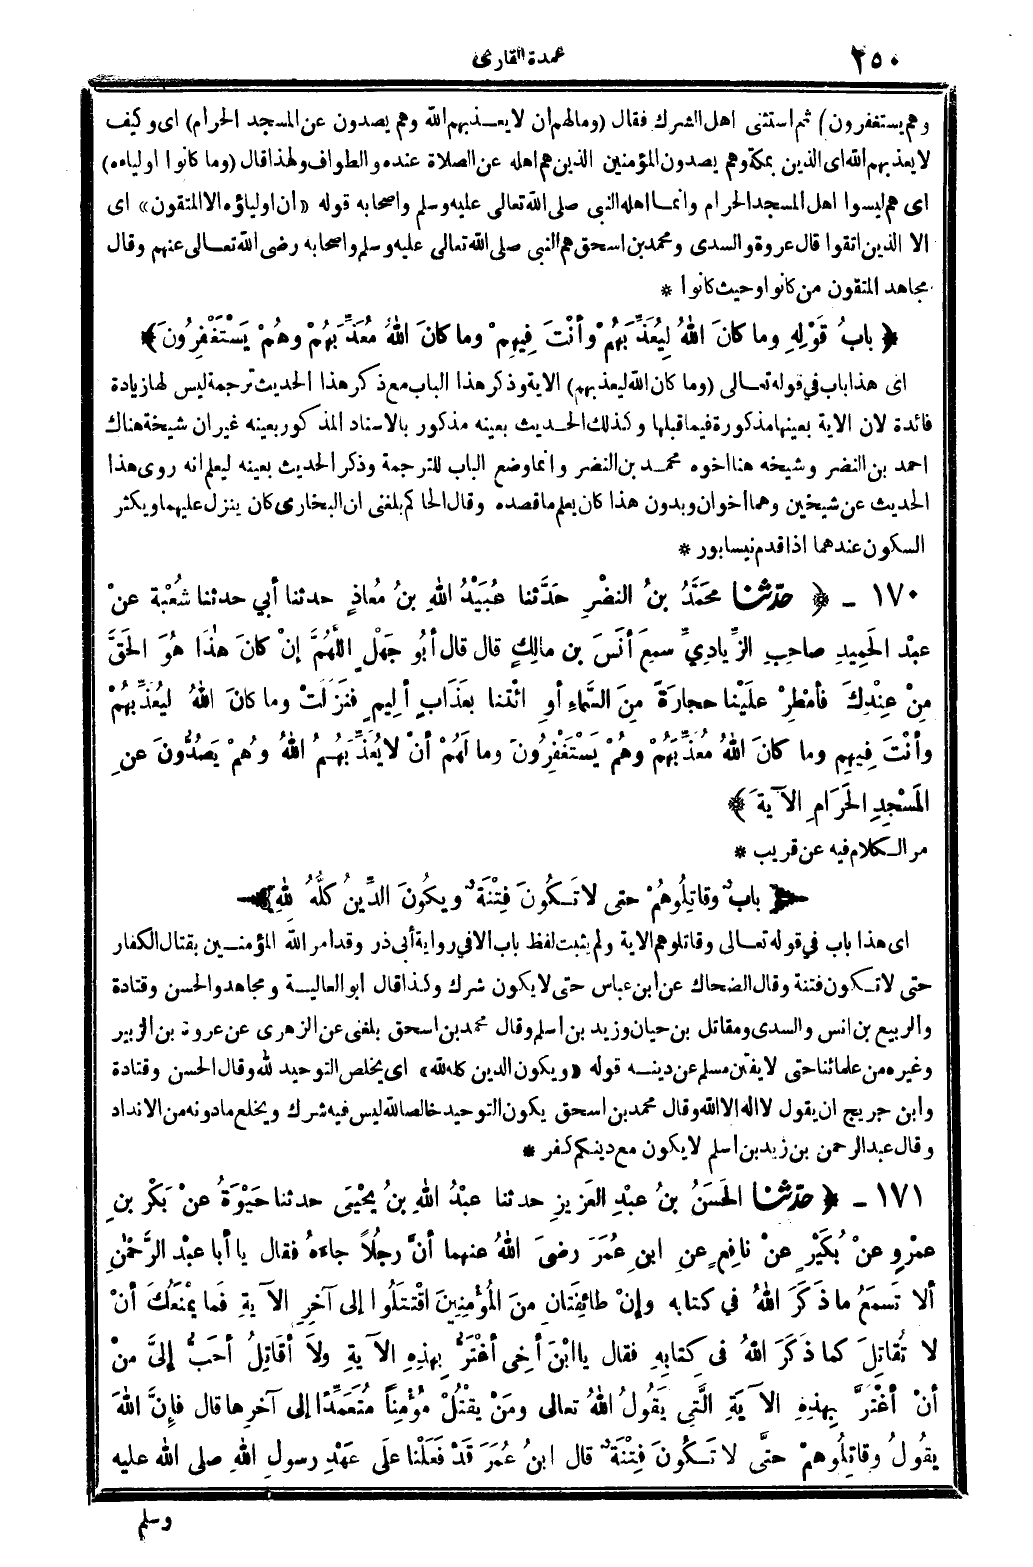 ٢٥٠ عمدة القارى
وهم يستغفرون) ثم استثنى اهل الشرك فقال (وما لهم ان لا يعذبهم الله وهم يصدون عن المسجد الحرام) اى وكيف
لا يعذبهم الله اى الذين بمكة وهم يصدون المؤمنين الذين هم اهله عن الصلاة عنده والطواف ولهذا قال (وما كانوا اولياءه)
اى هم ليسوا اهل المسجد الحرام وانما اهله النبى صلى الله تعالى عليه وسلم واصحابه قوله «ان اولياؤه الا المتقون» اى
الا الذين اتقوا قال عروة والسدى ومحمد بن اسحق هم النبى صلى الله تعالى عليه وسلم واصحابه رضى الله تعالى عنهم وقال
مجاهد المتقون من كانوا وحيث كانوا *
﴿ بابُ قَوْلِهِ وما كانَ اللهُ لِيُعَذِّبَهُمْ وأنْتَ فِيهِمْ وما كانَ اللهُ مُعَذِّبَهُمْ وهُمْ يَسْتَغْفِرُونَ ﴾
اى هذا باب في قوله تعالى (وما كان الله ليعذبهم) الاية وذكر هذا الباب مع ذكر هذا الحديث ترجمة ليس لها زيادة
فائدة لان الاية بعينها مذكورة فيما قبلها وكذلك الحديث بعينه مذكور بالاسناد المذكور بعينه غير ان شيخه هناك
احمد بن النضر وشيخه هنا اخوه محمد بن النضر وانما وضع الباب للترجمة وذكر الحديث بعينه ليعلم انه روى هذا
الحديث عن شيخين وهما أخوان وبدون هذا كان يعلم ما قصده وقال الحاكم بلغنى ان البخارى كان ينزل عليهما ويكثر
السكون عندهما اذا قدم نيسابور *
١٧٠ - ﴿ حدّثنا محَمَّدُ بنُ النضْرِ حَدَّثَنا عُبَيْدُ اللهِ بنُ مُعاذٍ حدثنا أبي حدثنا شُعْبَةُ عنْ
عبْدِ الحَمِيدِ صاحِبِ الزِّيادِيِّ سمِعَ أنَسَ بن مالِكٍ قال قال أبُو جَهْلٍ اللَّهُمَّ إنْ كانَ هٰذَا هُوَ الحَقَّ
مِنْ عِنْدِكَ فأمْطِرْ علَيْنا حجارَةً مِنَ السَّماءِ أوِ ائْتنا بعَذَابٍ ألِيمٍ فنَزَلَتْ وما كانَ اللهُ لِيُعَذِّبَهُمْ
وأنْتَ فِيهِم وما كانَ اللهُ مُعَذِّبَهُمْ وهُمْ يَسْتَغْفِرُونَ وما لَهُمْ أنْ لا يُعَذِّبَهُمُ اللهُ وهُمْ يَصُدُّونَ عنِ
المَسْجِدِ الحَرَامِ الآيةَ ﴾
مر الكلام فيه عن قريب *
﴿ بابٌ وقاتِلُوهُمْ حتى لا تَكُونَ فِتْنَةٌ ويكُونَ الدِّينُ كلُّهُ لِلهِ ﴾
اى هذا باب في قوله تعالى وقاتلوهم الاية ولم يثبت لفظ باب الا في رواية أبى ذر وقد امر الله المؤمنين بقتال الكفار
حتى لا تكون فتنة وقال الضحاك عن ابن عباس حتى لا يكون شرك وكذا قال ابو العالية ومجاهد والحسن وقتادة
والربيع بن انس والسدى ومقاتل بن حيان وزيد بن أسلم وقال محمد بن اسحق بلغنى عن الزهرى عن عروة بن الزبير
وغيره من علمائنا حتى لا يفتن مسلم عن دينه قوله «ويكون الدين كله لله» اى يخلص التوحيد لله وقال الحسن وقتادة
وابن جريج ان يقول لا اله الا الله وقال محمد بن اسحق يكون التوحيد خالصا لله ليس فيه شرك ويخلع ما دونه من الانداد
وقال عبد الرحمن بن زيد بن اسلم لا يكون مع دينكم كفر *
١٧١ - ﴿ حدّثنا الحَسَنُ بنُ عبْدِ العَزِيزِ حدثنا عبْدُ اللهِ بنُ يَحْيَى حدثنا حَيْوَةُ عنْ بَكْرِ بنِ
عمْرٍو عنْ بُكَيْرٍ عنْ نافِعٍ عنِ ابنِ عُمَرَ رضىَ اللهُ عنهما أنَّ رجُلاً جاءَهُ فقال يا أبا عبْدِ الرَّحْمٰنِ
ألا تَسمَعُ ما ذَكَرَ اللهُ في كتابِهِ وإنْ طائِفَتَانِ منَ المُؤْمِنِينَ اقْتَتَلُوا إلى آخرِ الآيةِ فَما يمْنَعُكَ أنْ
لا تُقاتِلَ كما ذَكَرَ اللهُ فى كِتابِهِ فقال يا ابْنَ أخِى أغْتَرُّ بهذِهِ الآيةِ ولاَ أقاتِلُ أحَبُّ إلىَّ منْ
أنْ أغْتَرَّ بِهذِهِ الآيَةِ الَّتِي يَقُولُ اللهُ تعالى ومَنْ يقْتُلْ مُؤْمِناً مُتَعَمِّدًا إلى آخرِها قال فإنَّ اللهَ
يقُولُ وقاتِلُوهمْ حتَّى لا تَكُونَ فِتْنَةٌ قال ابنُ عُمَرَ قَدْ فعَلْنا علَى عَهْدِ رسولِ اللهِ صلى الله عليه
وسلم